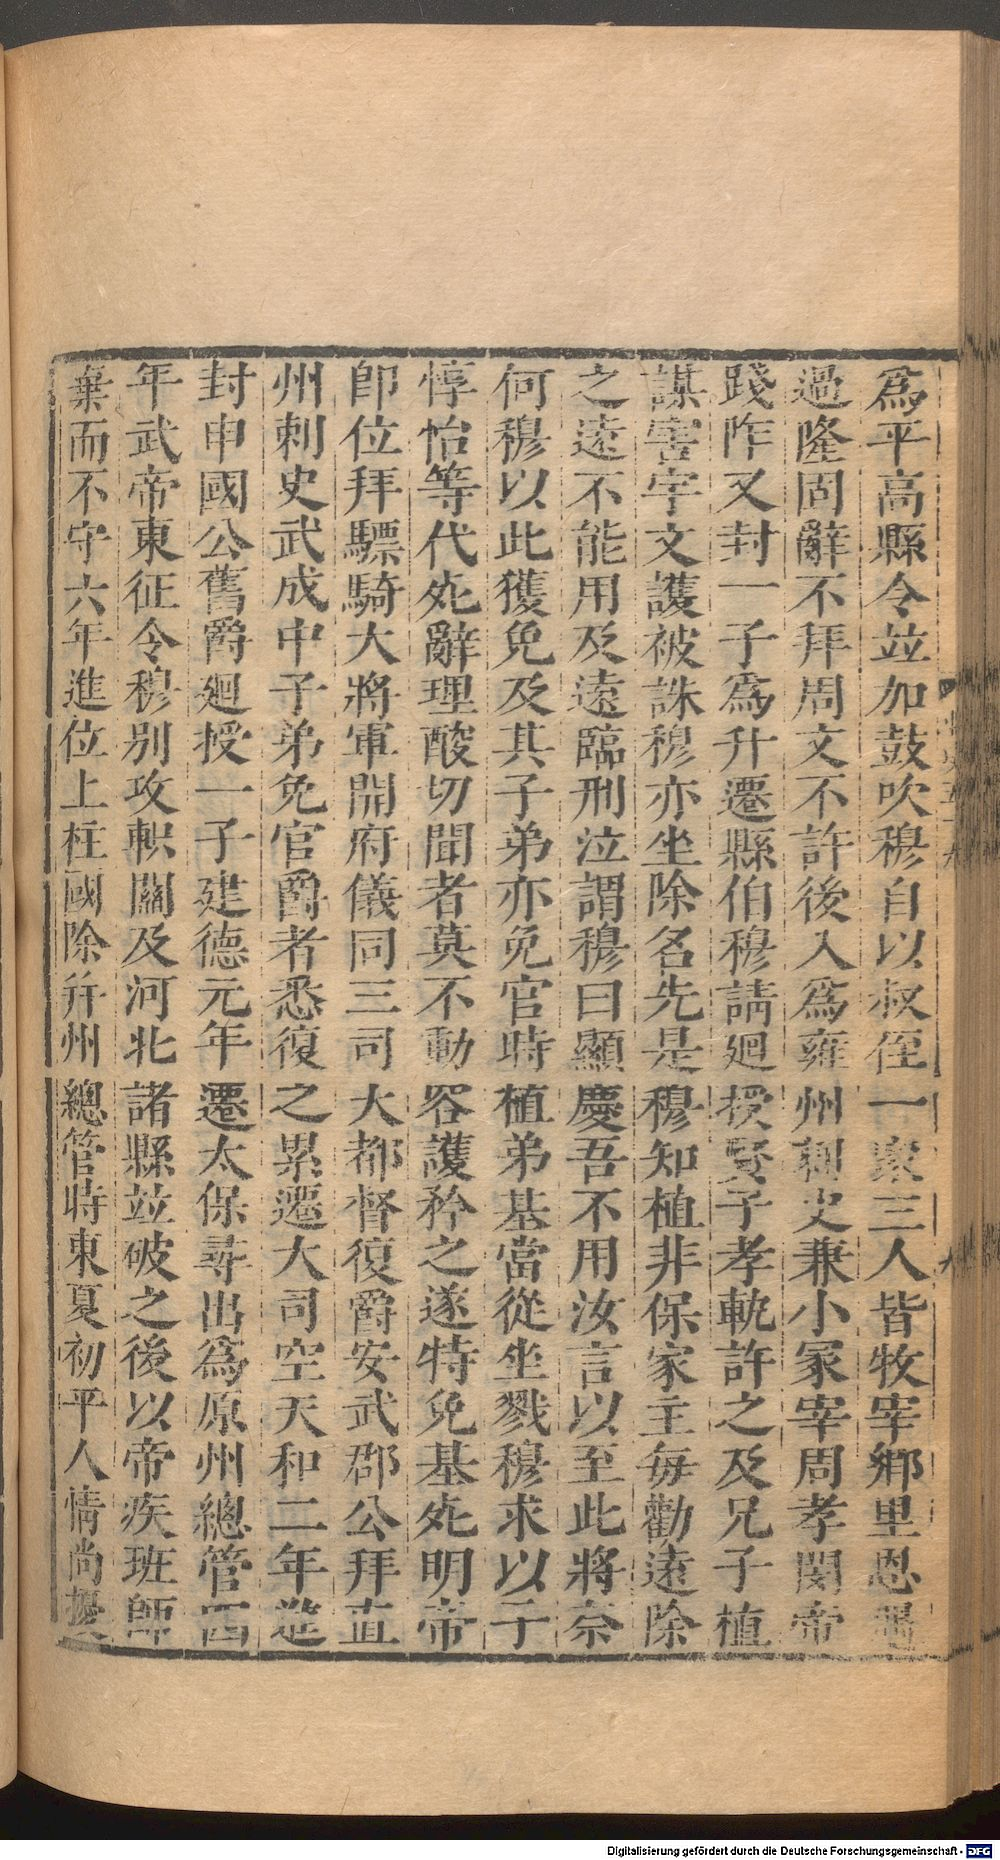 爲平高縣令竝加鼓吹穆自以叔侄一家三人皆牧宰鄉里恩遇
過隆固辭不拜周文不許後入爲雍州刺史兼小冢宰周孝閔帝
踐阼又封一子爲升遷縣伯穆請廻授賢子孝軌許之及兄子植
謀害宇文護被誅穆亦坐除名先是穆知植非保家主每勸遠除
之遠不能用及遠臨刑泣謂穆曰顯慶吾不用汝言以至此將奈
何穆以此獲免及其子弟亦免官時植弟基當從坐戮穆求以子
惇怡等代死辭理酸切聞者莫不動容護矜之遂特免基死明帝
即位拜驃騎大將軍開府儀同三司大都督復爵安武郡公拜直
州刺史武成中子弟免官爵者悉復之累遷大司空天和二年進
封申國公舊爵廻授一子建德元年遷太保尋出爲原州總管四
年武帝東征令穆别攻軹關及河北諸縣竝破之後以帝疾班師
棄而不守六年進位上柱國除并州總管時東夏初平人情尚擾
Digitalisierung gefördert durch die Deutsche Forschungsgemeinschaft - DFG